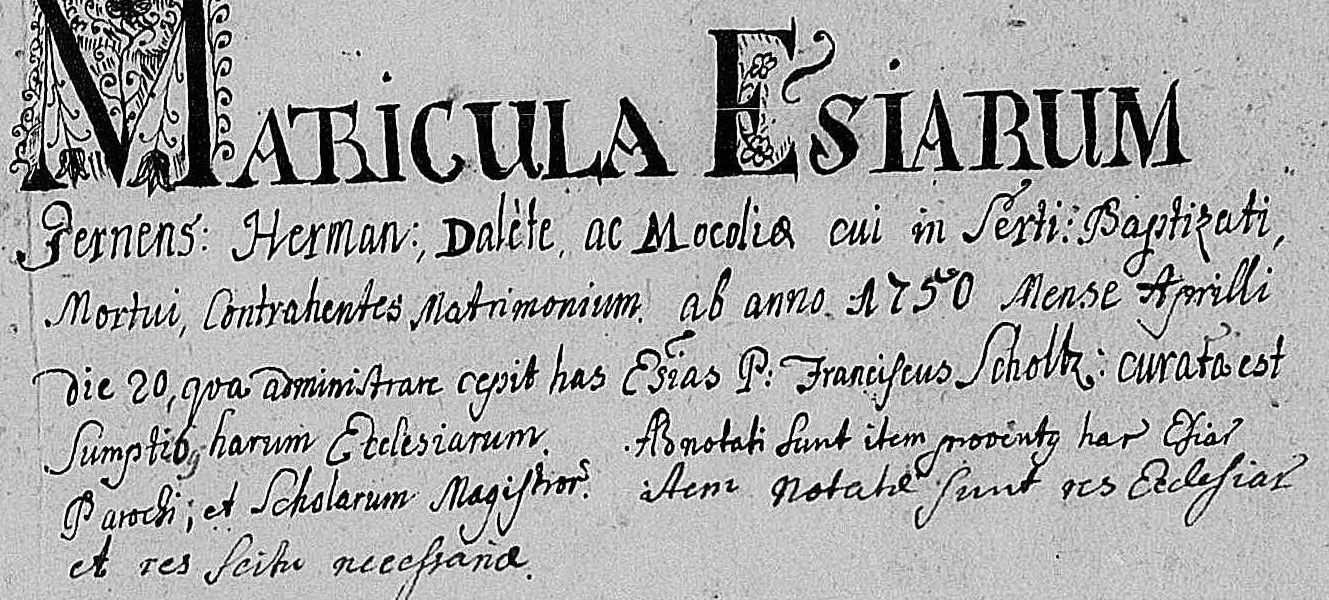 MATRICULA ESIARUM
Pernens: Herman:, Dalète, ac Mocoliæ cui in Serti: Baptizati,
Mortui, Contrahentes Matrimonium. ab anno 1750 Mense Aprilli
die 20, qva administrare cepit has Esias P: Franciscus Scholtz: curata est
Sumptibq harum Ecclesiarum. Adnotati sunt item proventq har Esiar
Parochi; et Scholarum Magistror. item notatæ sunt res Ecclesiar
et res scitu necessariæ.